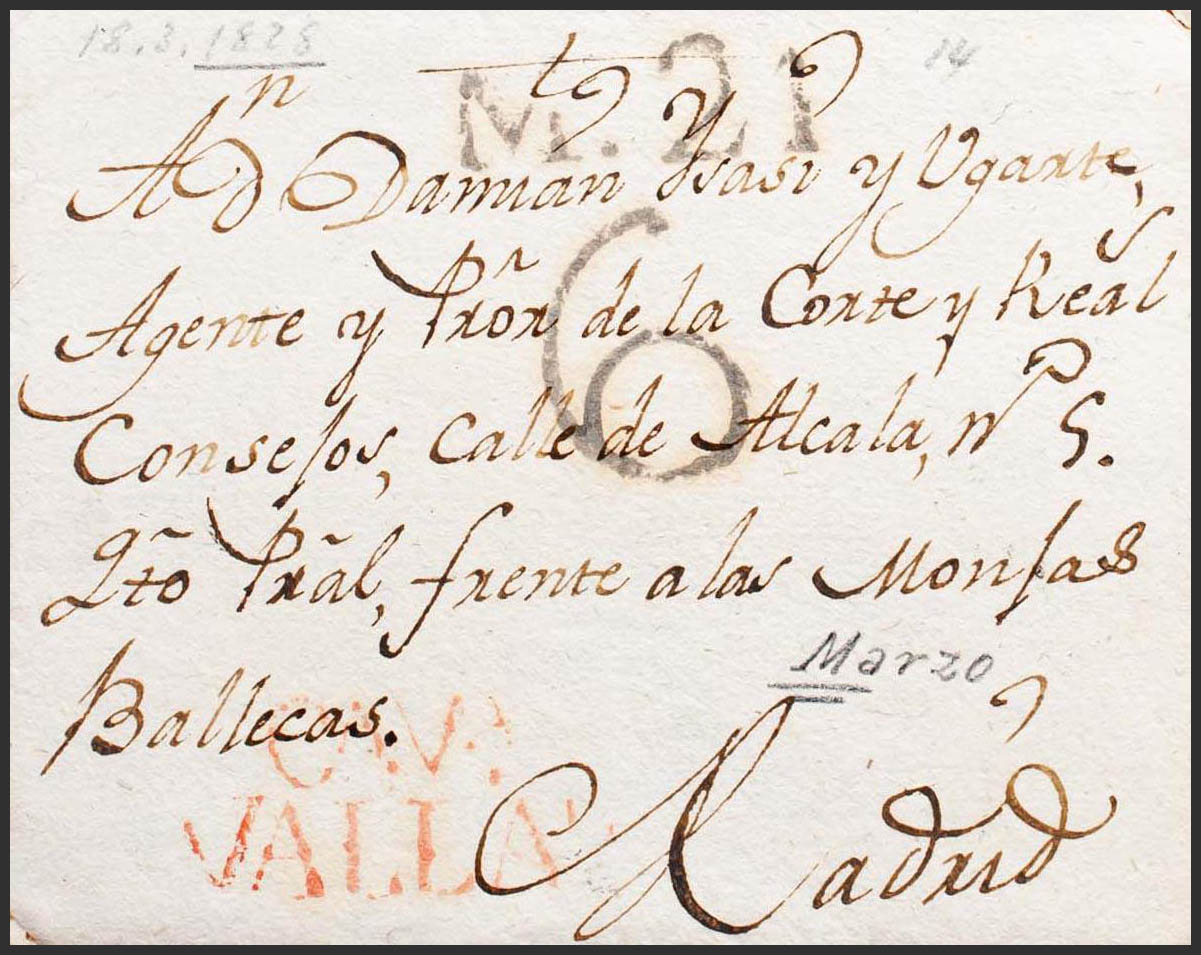 18.3.1828
14
M. 21
A Dn Damian Ysasi y Ugarte,
Agente y Prõr de la Corte y Reals
Consejos, Calle de Alcala, no 5.
6
Qto Prãl, frente a las Monjas
Ballecas.
Marzo
C.V.
VALLA
Madrid